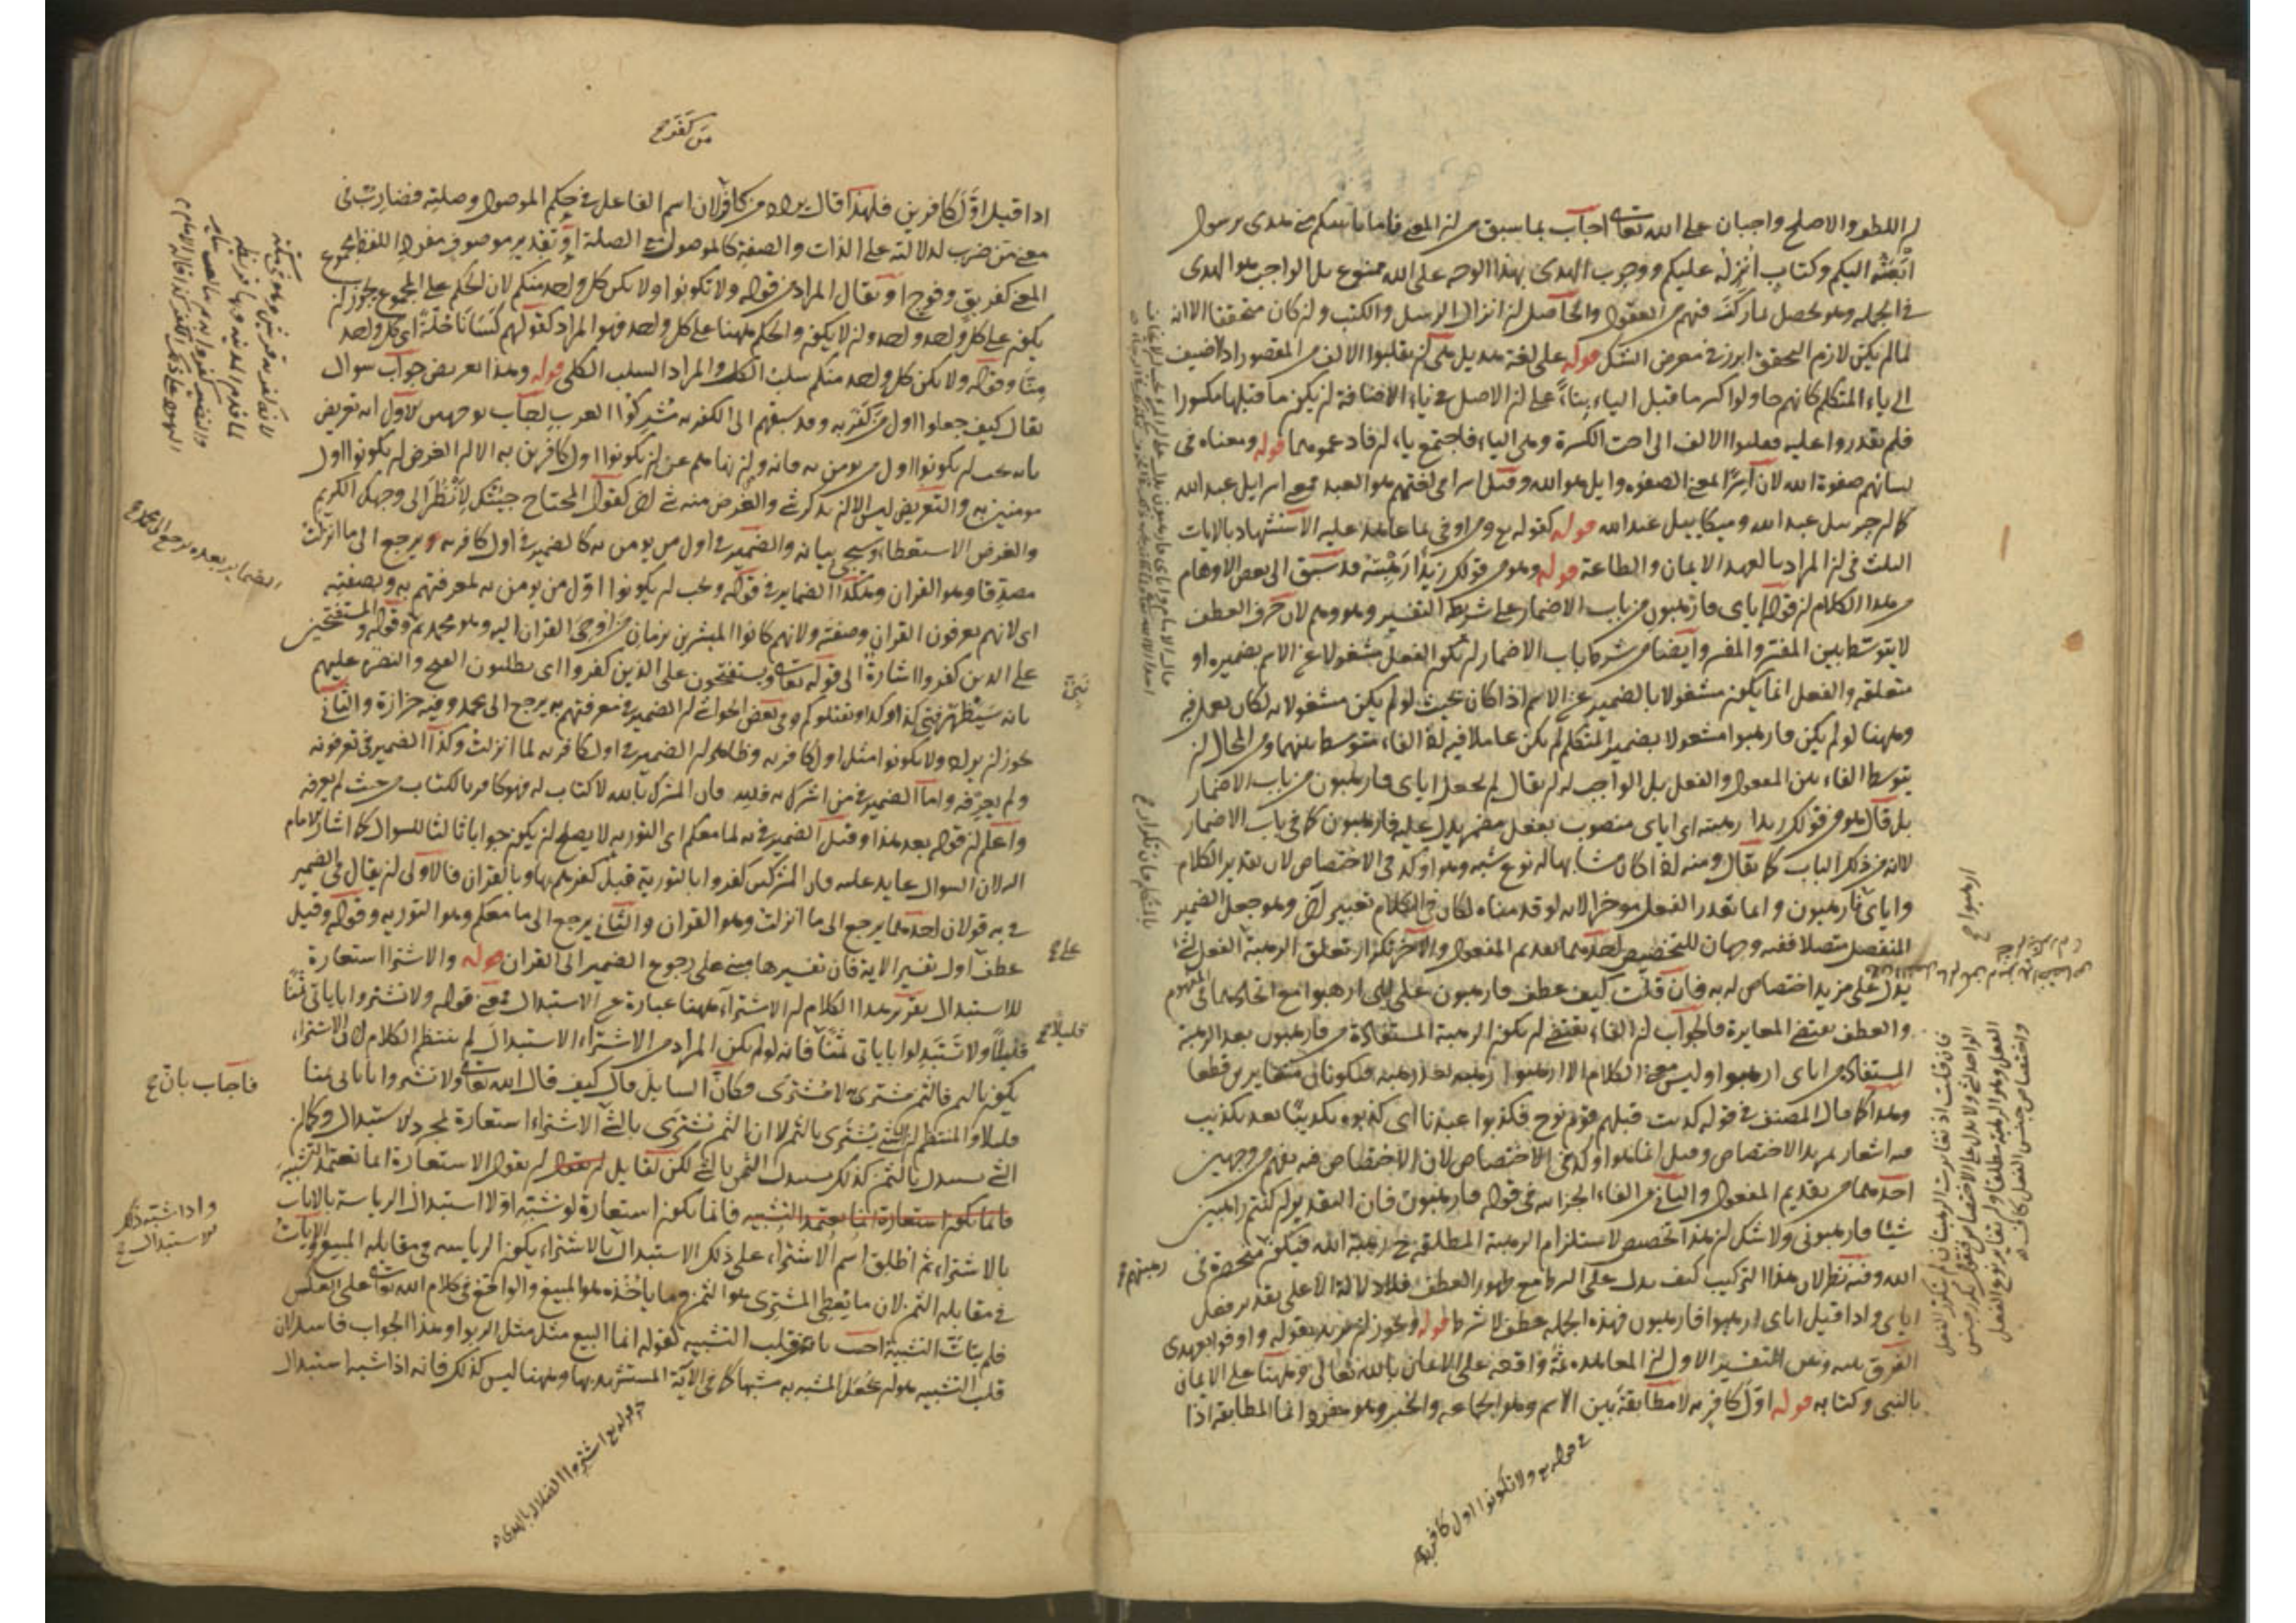 اللطف والاصلح واجبان على الله تعالى اجاب بما سبق من ان المعنى فاما يأتينكم مني هدى برسول
ابعثه اليكم وكتاب انزله عليكم ووجوب الهدى بهذا الوجه على الله ممنوع بل الواجب هو الهدى
في الجملة وهو يحصل بما ركب فيهم من العقول والحاصل ان انزال الرسل والكتب وان كان متحققا الا انه
لما لم يكن لازم التحقق ابرز في معرض الشك قوله على لغة هذيل هي ان يقلبوا الالف من المقصور اذا اضيف
الى ياء المتكلم كانهم حاولوا كسر ما قبل الياء بناء على ان الاصل في ياء الاضافة ان يكون ما قبلها مكسورا
فلم يقدروا عليه فقلبوا الالف الى اخت الكسرة وهي الياء فاجتمع ياءان فادغموهما قوله ومعناه في
لسانهم صفوة الله لان اسرا لمعنى الصفوة وايل هو الله وقيل اسرا في لغتهم هو العبد فمعنى اسرايل عبد الله
كما ان جبريل عبد الله وميكاييل عبد الله قوله كقوله ومن اوفى بما عاهد عليه الاستشهاد بالايات
الثلث في ان المراد بالعهد الايمان والطاعة قوله وهو من قولك زيدا رهبته قد سبق الى بعض الاوهام
من هذا الكلام ان قوله اياي فارهبون من باب الاضمار على شريطة التفسير وهو وهم لان حرف العطف
لا يتوسط بين المفسر والمفسر وايضا من شرط باب الاضمار ان يكون الفعل مشغولا عن الاسم بضميره او
متعلقه والفعل انما يكون مشغولا بالضمير عن الاسم اذا كان بحيث لو لم يكن مشغولا به لكان يعمل فيه
وههنا لو لم يكن فارهبوا مشغولا بضمير المتكلم لم يكن عاملا فيه لان الفاء متوسط بينهما ومن المحال ان
يتوسط الفاء بين المعمول والفعل بل الواجب ان يقال لم يجعل اياي فارهبون من باب الاضمار
بل قال هو من قولك زيدا رهبته اي اياي منصوب بفعل مضمر يدل عليه فارهبون كما في باب الاضمار
لا انه من ذلك الباب كما يقال ومنه لما كان مشابها له نوع شبه وهو اوكد في الاختصاص لان تقدير الكلام
واياي فارهبون وانما تقدر الفعل موخرا لانه لو قدمناه لكان في الكلام تغيير آخر وهو جعل الضمير
المنفصل متصلا ففيه وجهان للتخصيص احدهما تقديم المفعول والآخر تكرار تعلق الرهبة الفعل
يدل على مزيد اختصاص له به فان قلت كيف عطف فارهبون على اياي ارهبوا مع اتحادهما في المفهوم
والعطف يقتضي المغايرة فالجواب ان الفاء يقتضي ان يكون الرهبة المستفادة من فارهبون بعد الرهبة
المستفادة من اياي ارهبوا وليس معنى الكلام الا ارهبوا رهبة بعد رهبة فتكونان متغايرين قطعا
وهذا كما قال المصنف في قوله كذبت قبلهم قوم نوح فكذبوا عبدنا اي كذبوه تكذيبا بعد تكذيب
فيه اشعار بهذا الاختصاص وقيل انما هو اوكد في الاختصاص لان الاختصاص فيه يفهم من وجهين
احدهما من تقديم المفعول والثاني من الفاء الجزائية في قوله فارهبون فان التقدير ان كنتم راهبين
شيئا فارهبوني ولا شك ان هذا تخصيص لاستلزام الرهبة المطلقة رهبة الله فيكون منحصرة في
الله وفيه نظر لان هذا التركيب كيف يدل على الشرط مع ظهور العطف فلا دلالة الا على تقدير فعل
اياي واذا قيل اياي ارهبوا فارهبون فهذه الجملة عطف لا شرط قوله ويجوز ان يريد بقوله واوفوا بعهدي
الفرق بينه وبين التفسير الاول ان المعاهدة ثمة واقعة على الايمان بالله تعالى وههنا على الايمان
بالنبي وكتابه قوله اول كافر به لا مطابقة بين الاسم وهو الجماعة والخبر وهو مفرد وانما المطابقة اذا
في قوله ولا تكونوا اول كافر به
من كفر صح
اذا قيل اول كافرين فلهذا قال من كافر لان اسم الفاعل في حكم الموصول وصلته فضارب في
معنى من ضرب لدلالته على الذات والصفة كالموصول مع الصلة او تقدير موصوف مفرد اللفظ مجموع
المعنى كفريق وفوج او يقال المراد من قوله ولا تكونوا ولا يكن كل واحد منكم لان الحكم على المجموع يجوز ان
يكون على كل واحد واحد وان لا يكون والحكم ههنا على كل واحد فهو المراد كقولهم كسانا حلة اي كل واحد
منا وقوله ولا يكن كل واحد منكم سلب الكل والمراد السلب الكلي قوله وهذا تعريض جواب سوال
يقال كيف جعلوا اول من كفر به وقد سبقهم الى الكفر به مشركوا العرب اجاب بوجهين الاول انه تعريض
بانه يجب ان يكونوا اول من يومن به فانه وان نهاهم عن ان يكونوا اول كافرين به الا ان الغرض ان يكونوا اول
مومنين به والتعريض ليس الا ان يذكر شيء والغرض منه شيء آخر كقول المحتاج جئتك لانظر الى وجهك الكريم
والغرض الاستعطاء وسيجي بيانه والضمير في اول من يومن به كالضمير في اول كافر به يرجع الى ما انزلت
مصدقا وهو القران وهكذا الضماير في قوله وجب ان يكونوا اول من يومن به لمعرفتهم به وبصفته
اي لانهم يعرفون القران وصفته ولانهم كانوا المبشرين بزمان من اوحي القران اليه وهو محمد وقوله والمستفتحين
على الذين كفروا اشارة الى قوله تعالى ويستفتحون على الذين كفروا اي يطلبون الفتح والنصرة عليهم
بانه سيظهر نبي كذا وكذا ونقتلكم وفي بعض الحواشي ان الضمير في معرفتهم به يرجع الى محمد وفيه حزازة والثاني
يجوز ان يراد ولا تكونوا مثل اول كافر به وظاهر ان الضمير في اول كافر به لما انزلت وكذا الضمير في تعرفونه
ولم يعرفه واما الضمير في من اشرك به فلله فان المشرك بالله لا كتاب له فهو كافر بالكتاب من حيث لم يعرفه
واعلم ان قوله بعد هذا وقيل الضمير في به لما معكم اي التورية لا يصلح ان يكون جوابا ثالثا للسوال كما اشار الامام
اليه لان السوال عايد عليه فان المشركين كفروا بالتورية قبل كفرهم بها وبالقران فالاولى ان يقال في الضمير
في به قولان احدهما يرجع الى ما انزلت وهو القران والثاني يرجع الى ما معكم وهو التورية وقوله وقيل
عطف اول تفسير الآية فان تفسيرها مبني على رجوع الضمير الى القران قوله والاشترا استعارة
للاستبدال تقرير هذا الكلام ان الاشتراء ههنا عبارة عن الاستبدال فمعنى قوله ولا تشتروا باياتي ثمنا
قليلا ولا تستبدلوا باياتي ثمنا فانه لو لم يكن المراد من الاشتراء الاستبدال لم ينتظم الكلام لان الاشتراء
يكون بالثمن فالثمن مشترى به لا مشترى وكان السايل قال كيف قال الله تعالى ولا تشتروا باياتي ثمنا
قليلا والمنتظم ان الشيء يشترى بالثمن لا ان الثمن تشترى بالشيء الاشتراء استعارة لمجرد الاستبدال وكما ان
الشيء يستبدل بالثمن كذلك يستبدل الثمن بالشيء لكن لقايل ان يقول الاستعارة انما تعتمد التشبيه
فانما يكون استعارة انما يعتمد التشبيه فانما يكون استعارة لو شبه اولا استبدال الرياسة بالايات
بالاشتراء ثم اطلق اسم الاشتراء على ذلك الاستبدال بالاشتراء يكون الرياسة في مقابلة المبيع والايات
في مقابلة الثمن لان ما يعطي المشتري هو الثمن وما ياخذه هو المبيع والواقع في كلام الله تعالى على العكس
فلم يتات التشبيه اجيب بانه قلب التشبيه كقوله انما البيع مثل الربوا وهذا الجواب فاسد لان
قلب التشبيه هو ان يجعل المشبه به مشبها كما في الآية المستشهد بها وههنا ليس كذلك فانه اذا شبه استبدال
الضماير بعده يرجع الى
نبي
على صح
قليلا صح
فاجاب بان صح
واذا شبه ذلك
الاستبدال صح
قوله اشتروا الضلالة بالهدى